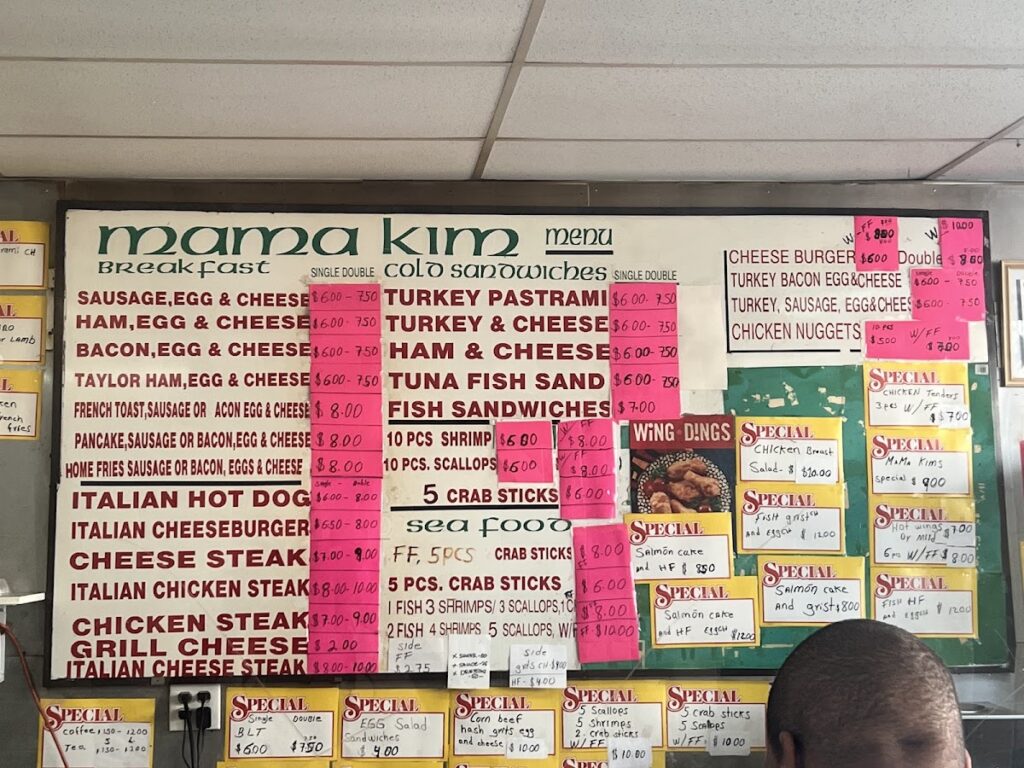 mama kim menu
Breakfast
SINGLE DOUBLE
SAUSAGE,EGG & CHEESE $6.00 - 7.50
HAM,EGG & CHEESE $6.00 - 7.50
BACON,EGG & CHEESE $6.00 - 7.50
TAYLOR HAM,EGG & CHEESE $6.00 - 7.50
FRENCH TOAST,SAUSAGE OR ACON EGG & CHEESE $8.00
PANCAKE,SAUSAGE OR BACON,EGG & CHEESE $8.00
HOME FRIES SAUSAGE OR BACON, EGGS & CHEESE $8.00
Single - Double
ITALIAN HOT DOG $6.00 - 8.00
ITALIAN CHEESEBURGER $6.50 - 8.00
CHEESE STEAK $7.00 - 9.00
ITALIAN CHICKEN STEAK $8.00 - 10.00
CHICKEN STEAK $7.00 - 9.00
GRILL CHEESE $2.00
ITALIAN CHEESE STEAK $8.00 - 10.00
cold sandwiches
SINGLE DOUBLE
TURKEY PASTRAMI $6.00 - 7.50
TURKEY & CHEESE $6.00 - 7.50
HAM & CHEESE $6.00 - 7.50
TUNA FISH SAND $6.00 - 7.50
FISH SANDWICHES $7.00
10 PCS SHRIMP $6.00 W/FF $8.00
10 PCS. SCALLOPS $6.00 W/FF $8.00
5 CRAB STICKS $6.00
sea food
FF, 5PCS CRAB STICKS $8.00
5 PCS. CRAB STICKS $6.00
1 FISH 3 SHRIMPS/ 3 SCALLOPS,1C $8.00
2 FISH 4 SHRIMPS 5 SCALLOPS, W/F $10.00
Side
FF
$2.75
Side
grits CH $4.00
HF - $4.00
W-FF
$6.00
W- $10.00
$8.00
CHEESE BURGER Double
TURKEY BACON EGG&CHEESE
Single - Double
TURKEY, SAUSAGE, EGG&CHEES $6.00 - 7.50
CHICKEN NUGGETS 10 PCS $5.00 W/FF $7.00
WiNG · DiNGS
SPECIAL
Chicken Breast
Salad - $ $10.00
SPECIAL
CHICKEN Tenders
3 pcs W/FF
$7.00
SPECIAL
MaMa Kims
special $9.00
SPECIAL
Fish grist CH
and EggCH $12.00
SPECIAL
Hot wings $7.00
or Mild
6 pcs W/FF $8.00
SPECIAL
Salmon cake
and HF $8.50
SPECIAL
Salmon cake
and grist $8.00
SPECIAL
Salmon cake
and HF eggCH $12.00
SPECIAL
Fish HF
and eggCH $12.00
SPECIAL
coffee $1.50 - $2.00
S L
Tea $1.50 - $2.00
SPECIAL
Single Double
BLT
$6.00 $7.50
SPECIAL
EGG Salad
Sandwiches
$4.00
SPECIAL
Corn beef
hash grits egg
and cheese $10.00
SPECIAL
5 Scallops
5 Shrimps
2 crab sticks
W/FF $10.00
SPECIAL
5 crab sticks
5 Scallops
W/FF $10.00